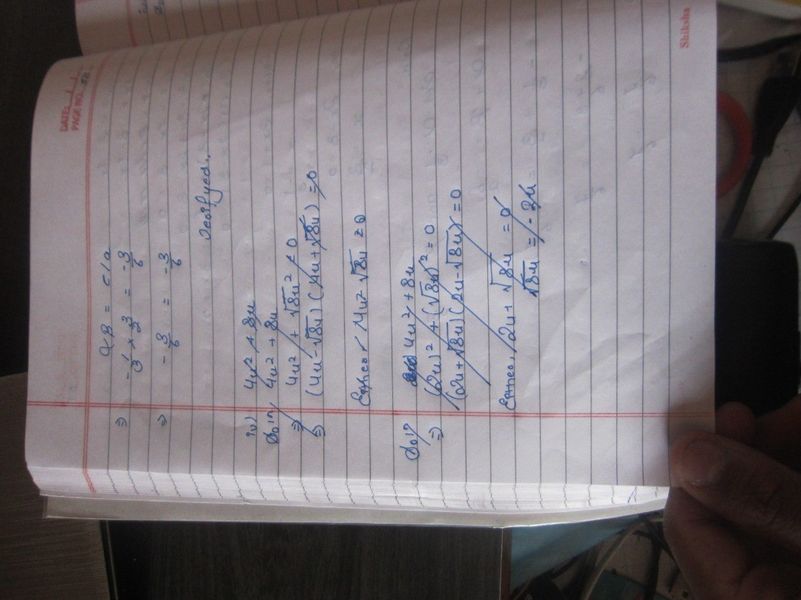 DATE: / /
PAGE NO.:
αβ = c/a
⇒ -1/3 × 3/2 = -3/6
⇒ -3/6 = -3/6
iv) 4u² + 8u
Soln 4u² + 8u
⇒ 4u² + √8u² = 0
⇒ (4u - √8u) (4u + √8u) = 0
4u - √8u = 0
Soln 4u² + 8u
⇒ (2u)² + (√8u)² = 0
(2u + √8u) (2u - √8u) = 0
2u + √8u = 0
√8u = -2u
Shiksha